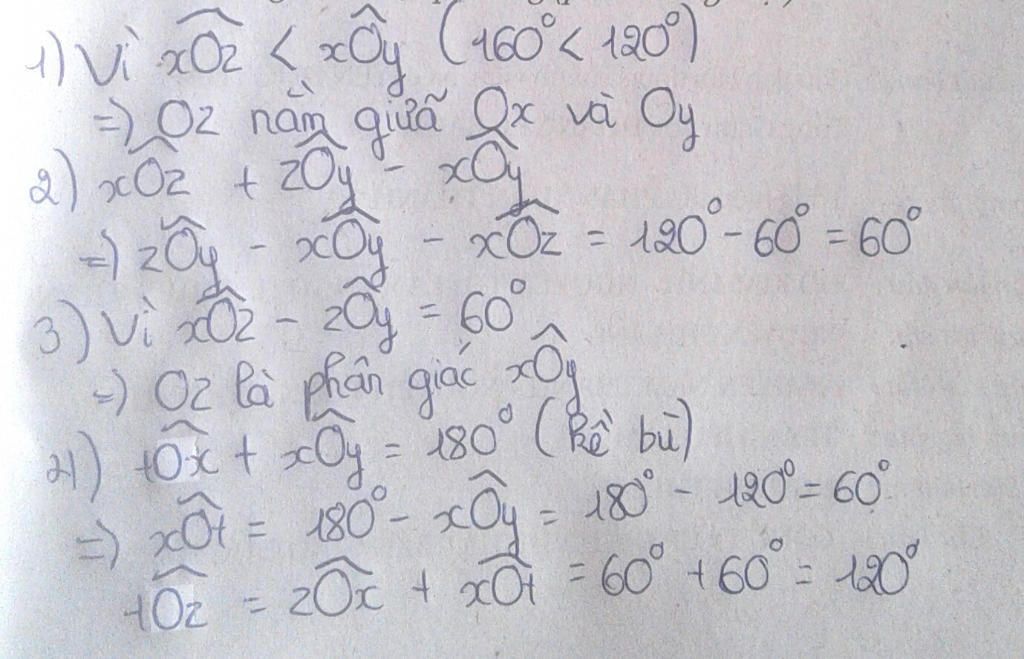 1) Vì xOz < xÔy (160° < 120°)
=) Oz nằm giữa Ox và Oy
2) xOz + zÔy - xÔy
=) zÔy - xÔy - xOz = 120° - 60° = 60°
3) Vì xOz - zÔy = 60°
=) Oz là phân giác xÔy
4) tOx + xÔy = 180° (kề bù)
=) xÔt = 180° - xÔy = 180° - 120° = 60°
tOz = zOx + xÔt = 60° + 60° = 120°